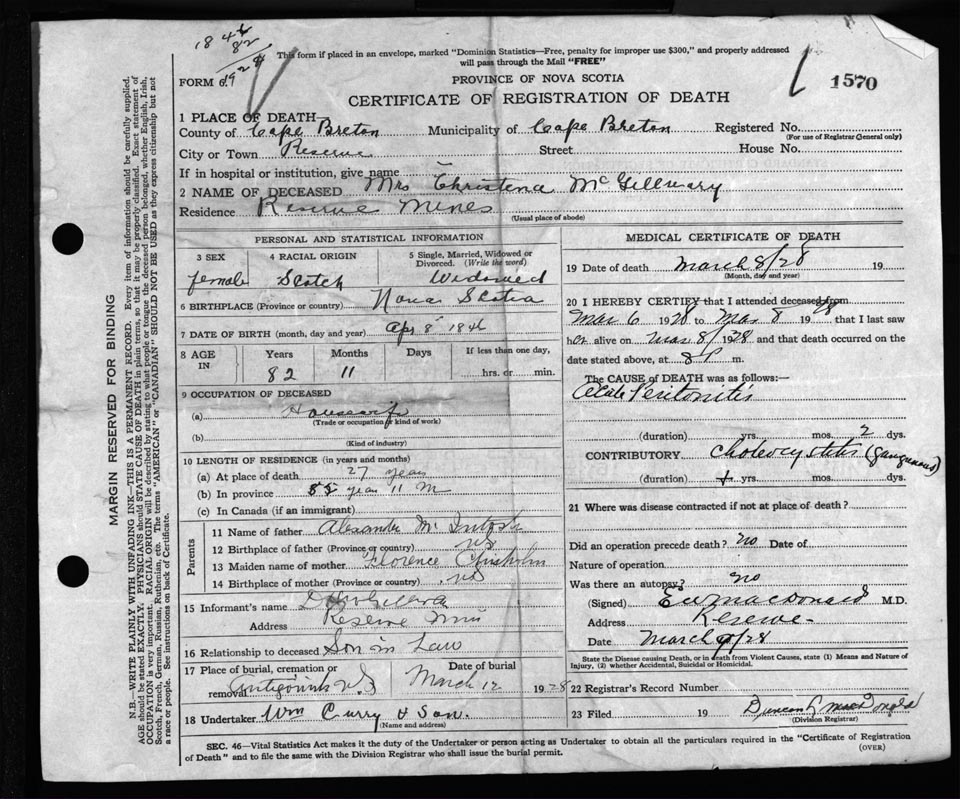 1846
82
1928
This form if placed in an envelope, marked "Dominion Statistics—Free, penalty for improper use $300," and properly addressed
will pass through the Mail "FREE"
FORM 6.
PROVINCE OF NOVA SCOTIA
1570
CERTIFICATE OF REGISTRATION OF DEATH
1 PLACE OF DEATH
County of Cape Breton Municipality of Cape Breton Registered No.
(For use of Registrar General only)
City or Town Reserve Street House No.
If in hospital or institution, give name
2 NAME OF DECEASED Mrs Christena McGillivary
Residence Reserve Mines
(Usual place of abode)
PERSONAL AND STATISTICAL INFORMATION
3 SEX 4 RACIAL ORIGIN 5 Single, Married, Widowed or Divorced. (Write the word)
female Scotch Widowed
6 BIRTHPLACE (Province or country) Nova Scotia
7 DATE OF BIRTH (month, day and year) Apr 8 1846
8 AGE IN Years Months Days If less than one day,
82 11 hrs. or min.
9 OCCUPATION OF DECEASED
(a) Housewife
(Trade or occupation or kind of work)
(b)
(Kind of industry)
10 LENGTH OF RESIDENCE (in years and months)
(a) At place of death 27 years
(b) In province year 11 M
(c) In Canada (if an immigrant)
Parents
11 Name of father Alexander McIntosh
12 Birthplace of father (Province or country) NS
13 Maiden name of mother Florence Chisholm
14 Birthplace of mother (Province or country) NS
15 Informant's name
Address Reserve
16 Relationship to deceased Son in Law
17 Place of burial, cremation or removal Antigonish N.S Date of burial March 12 1928
18 Undertaker Wm Curry & Son.
(Name and address)
MEDICAL CERTIFICATE OF DEATH
19 Date of death March 8/28 19
(Month, day and year)
20 I HEREBY CERTIFY that I attended deceased from
Mar 6 1928 to Mar 8 1928 that I last saw
her alive on Mar 8/ 1928 and that death occurred on the
date stated above, at 8 P m.
The CAUSE of DEATH was as follows:—
Acute Peritonitis
(duration) yrs. mos. 2 dys.
CONTRIBUTORY Cholecystitis (gangrenous)
(duration) yrs. mos. dys.
21 Where was disease contracted if not at place of death?
Did an operation precede death? no Date of
Nature of operation
Was there an autopsy? no
(Signed) MacDonald M.D.
Address Reserve
Date March 9/28
State the Disease causing Death, or in death from Violent Causes, state (1) Means and Nature of
Injury, (2) whether Accidental, Suicidal or Homicidal.
22 Registrar's Record Number
23 Filed 19 Duncan MacDonald
(Division Registrar)
SEC. 46—Vital Statistics Act makes it the duty of the Undertaker or person acting as Undertaker to obtain all the particulars required in the "Certificate of Registration
of Death" and to file the same with the Division Registrar who shall issue the burial permit.
(OVER)
MARGIN RESERVED FOR BINDING
N.B.—WRITE PLAINLY WITH UNFADING INK—THIS IS A PERMANENT RECORD. Every item of information should be carefully supplied.
AGE should be stated EXACTLY. PHYSICIANS should STATE CAUSE OF DEATH in plain terms, so that it may be properly classified. Exact statement of
OCCUPATION is very important. RACIAL ORIGIN will be described by stating to what people or tongue the deceased person belonged, whether English, Irish,
Scotch, French, German, Russian, Ruthenian, etc. The terms "AMERICAN" or "CANADIAN" SHOULD NOT BE USED as they express citizenship but not
a race or people. See instructions on back of Certificate.